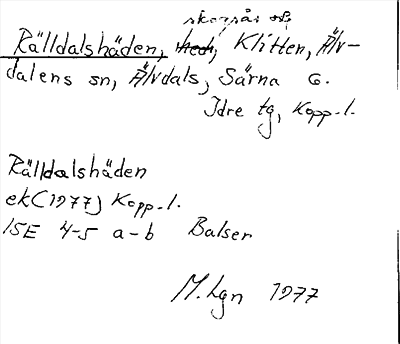 skogsås o.d.
Rälldalshäden, hed, Klitten, Älv-
dalens sn, Älvdals, Särna o.
Idre tg, Kopp. l.
Rälldalshäden
ek (1977) Kopp. l.
15E 4-5 a-b Balser
M. Lgn 1977